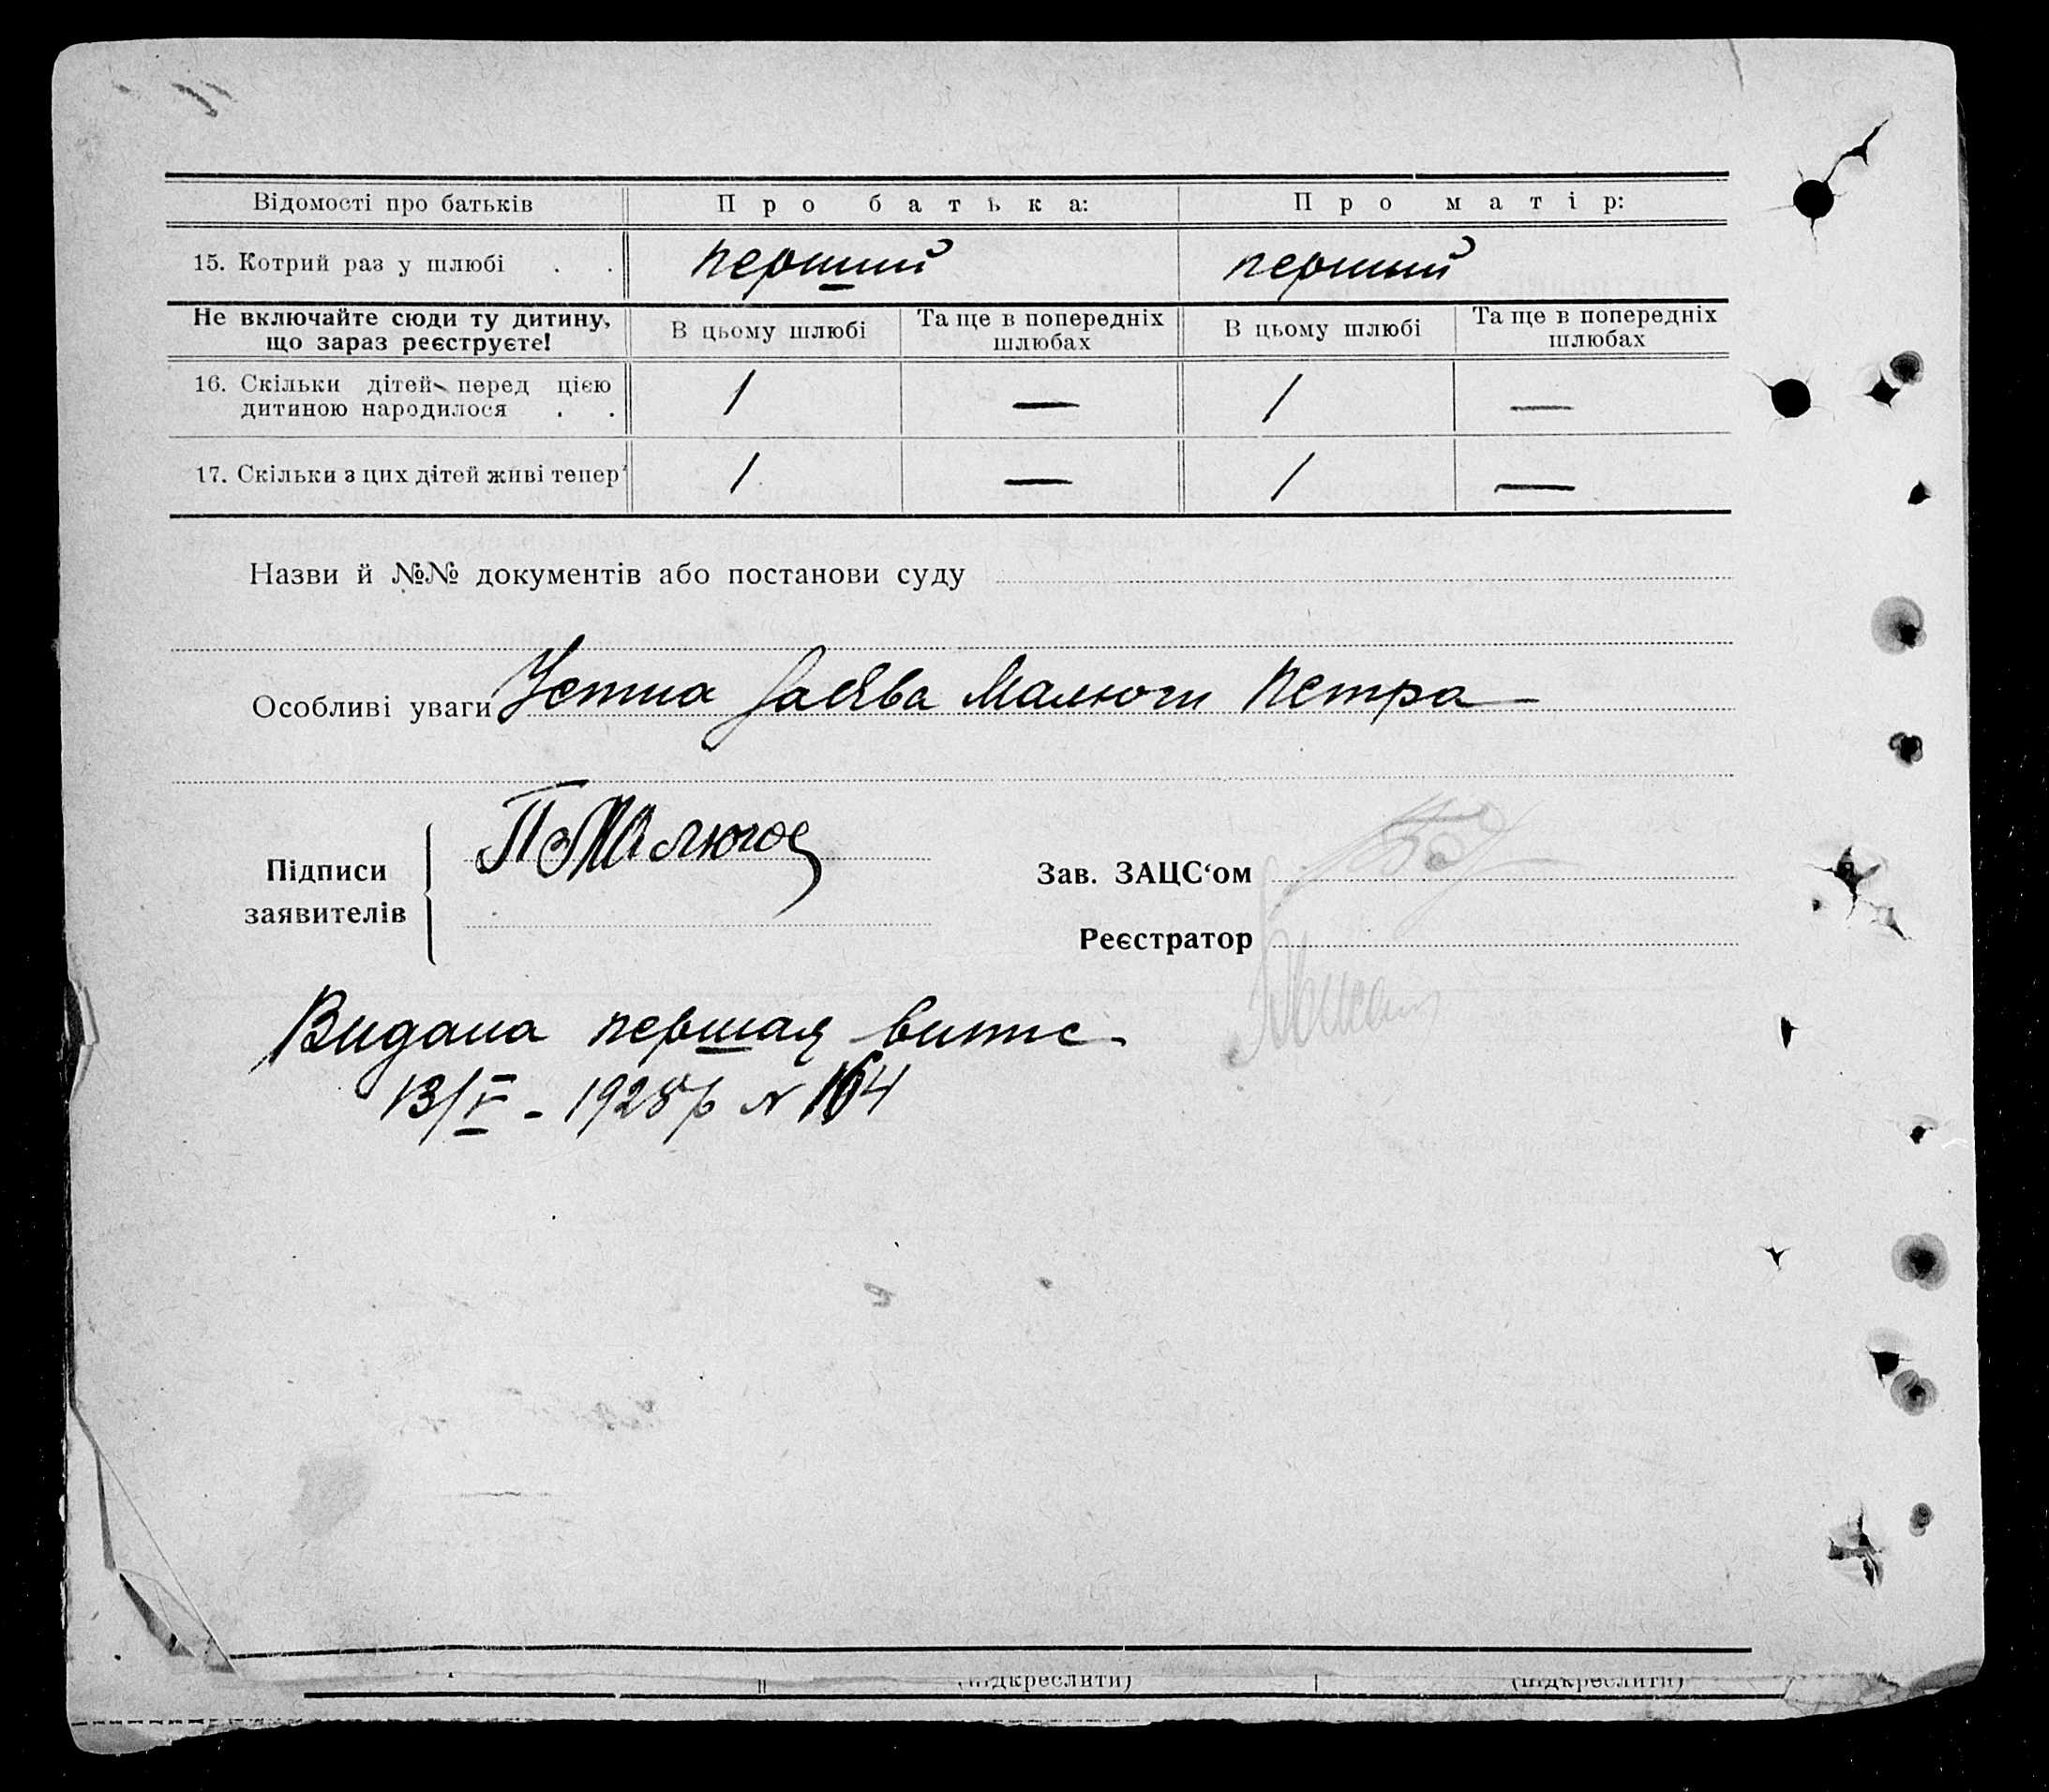 Відомості про батьків Про батька: Про матір:
15. Котрий раз у шлюбі . . перший перший
Не включайте сюди ту дитину, що зараз реєструєте! В цьому шлюбі Та ще в попередніх шлюбах В цьому шлюбі Та ще в попередніх шлюбах
16. Скільки дітей перед цією дитиною народилося . . 1 — 1 —
17. Скільки з цих дітей живі тепер 1 — 1 —
Назви й №№ документів або постанови суду
Особливі уваги Устна заява Малюги Петра
Підписи заявителів П Малюга
Зав. ЗАЦС‘ом
Реєстратор
Видана першая витс.
13/V - 1928 р N 164
(підкреслити) (підкреслити)